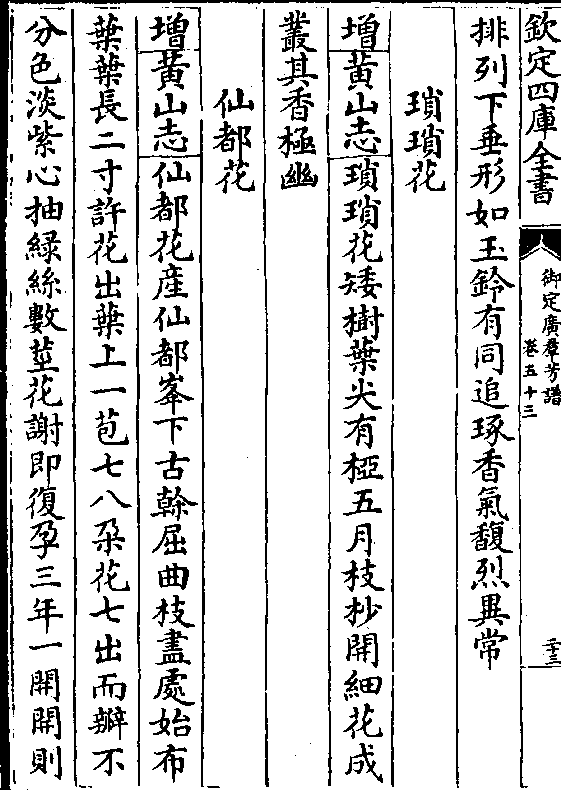 欽定四庫全書
御定廣羣芳譜
卷五十三
二十三
排列下垂形如玉鈴有同追琢香氣馥烈異常
瑣瑣花
增黄山志瑣瑣花矮樹葉尖有椏五月枝杪開細花成
叢其香極幽
仙都花
增黄山志仙都花産仙都峯下古榦屈曲枝盡處始布
葉葉長二寸許花出葉上一苞七八朶花七出而瓣不
分色淡紫心抽緑絲數莖花謝即復孕三年一開開則